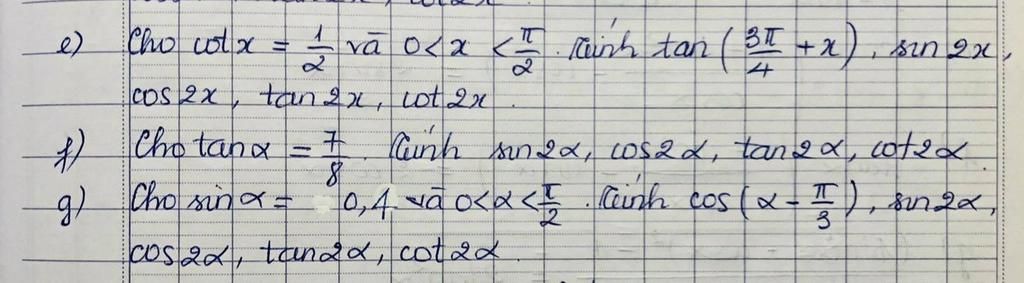 e) Cho cot x = 1/2 và 0 < x < π/2. Tính tan (3π/4 + x), sin 2x,
cos 2x, tan 2x, cot 2x.
f) Cho tan α = 7/8. Tính sin 2α, cos 2α, tan 2α, cot 2α
g) Cho sin α = 0,4 và 0 < α < π/2. Tính cos (α - π/3), sin 2α,
cos 2α, tan 2α, cot 2α.